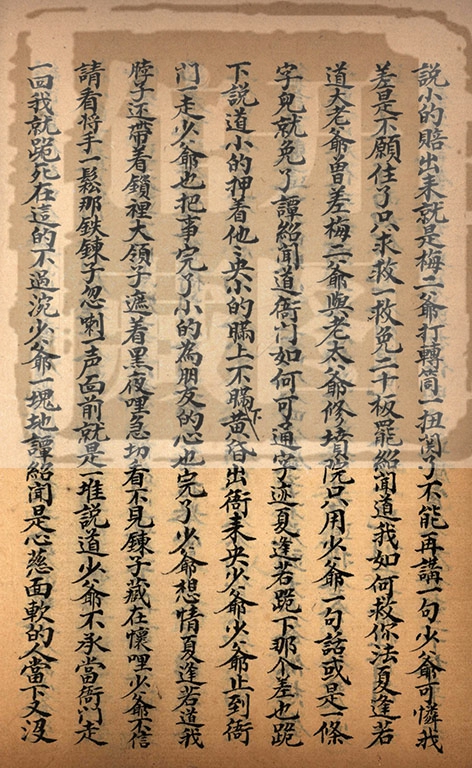 說小的賠出来就是梅二爺打轉筒一扭閙了不能再講一句少爺可憐我
差是不願住了只求救一救免二十板罷紹聞道我如何救你法夏逢若
道大老爺曾差梅二爺與老太爺修墳院只用少爺一句話或是一條
字兒就免了譚紹聞道衙门如何可通字迹夏逢若跪下那个差也跪
下說道小的押着他来央小的瞞上不瞞下黄昏出衙来央少爺少爺止到衙
门一走少爺也把事完了小的為朋友的心也完了少爺想情夏逢若道我
脖子还帶着鎖裡大領子遮着黑夜哩急切看不見鍊子藏在懷哩少爺不信
請看将手一鬆那鉄鍊子忽喇一声面前就是一堆說道少爺不承當衙门走
一回我就跪死在這的不過涴少爺一塊地譚紹聞是心慈面軟的人當下又没